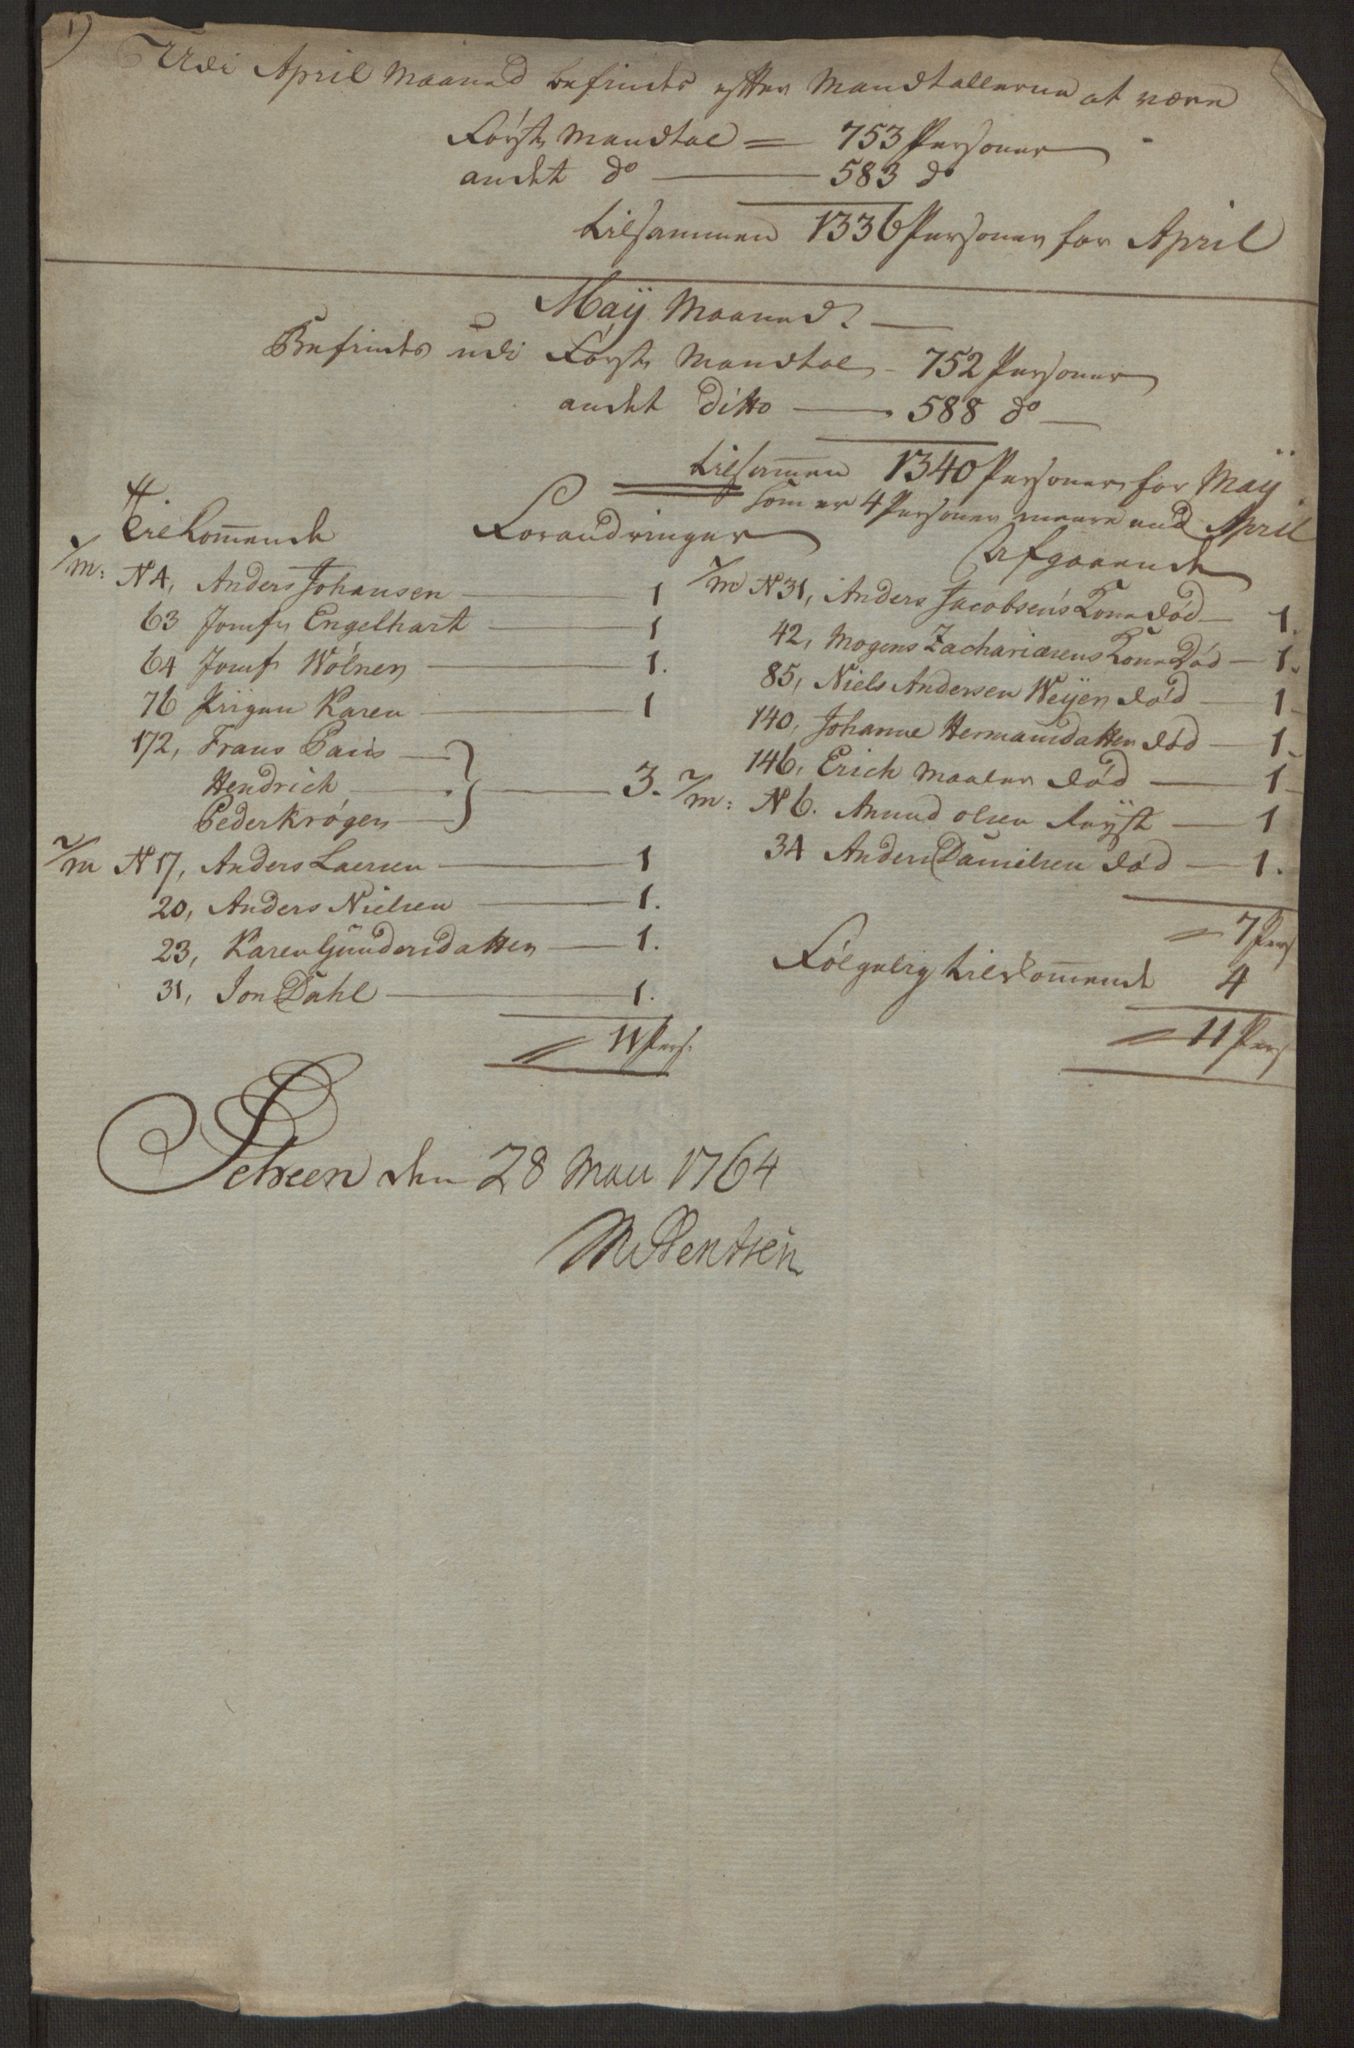 1)
Udi April Maaned befindes efter Mandtallerne at være
Første Mandtal = 753 Personer
andet do — 583 do
tilsammen 1336 Personer for April
Maÿ Maaned.
Befindes udi Første Mandtal - 752 Personer
andet Ditto — 588 do —
tilsam̅en 1340 Personer for Maÿ
som er 4 Personer meere end April
Forandringer
Tilkom̅ende
1/m: N 4, Anders Johansen — 1
63 Jomfr Engelhart — 1
64 Jomfr Wölner — 1.
76 Pigen Karen — 1
172, Frans Paus —
Hendrich
Peder Krøger — } — 3.
2/m N 17, Anders Laersen — 1
20, Anders Nielsen — 1.
23, Karen Gundersdatter — 1.
31, Jon Dahl — 1.
= 11 Pers.
Afgaaende
1/m N 31, Anders Jacobsens Kone død — 1.
42, Mogens Zachariæsens Kone Död — 1.
85, Niels Andersen Weyer død — 1
140, Johanne Hermansdatter død — 1
146, Erich Maaler død — 1
2/m: N 6. Amund Olsen Røyst — 1
34 Anders Danielsen død — 1.
= 7 Pers
Følgelig tilkom̅ende 4
= 11 Pers
Scheen den 28 Maii 1764
M Bentsen